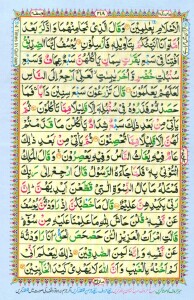 الْاَحْلَامِ بِعٰلِمِیْنَ وَقَالَ الَّذِیْ نَجَا مِنْهُمَا وَادَّكَرَ بَعْدَ
اُمَّةٍ اَنَا اُنَبِّئُكُمْ بِتَاْوِیْلِهٖ فَاَرْسِلُوْنِ یُوْسُفُ اَیُّهَا الصِّدِّیْقُ
اَفْتِنَا فِیْ سَبْعِ بَقَرٰتٍ سِمَانٍ یَّاْكُلُهُنَّ سَبْعٌ عِجَافٌ وَّسَبْعِ
سُنْۢبُلٰتٍ خُضْرٍ وَّاُخَرَ یٰبِسٰتٍ لَّعَلِّیْۤ اَرْجِعُ اِلَی النَّاسِ
لَعَلَّهُمْ یَعْلَمُوْنَ قَالَ تَزْرَعُوْنَ سَبْعَ سِنِیْنَ دَاَبًا فَمَا
حَصَدْتُّمْ فَذَرُوْهُ فِیْ سُنْۢبُلِهٖۤ اِلَّا قَلِیْلًا مِّمَّا تَاْكُلُوْنَ ثُمَّ
یَاْتِیْ مِنْۢ بَعْدِ ذٰلِكَ سَبْعٌ شِدَادٌ یَّاْكُلْنَ مَا قَدَّمْتُمْ
لَهُنَّ اِلَّا قَلِیْلًا مِّمَّا تُحْصِنُوْنَ ثُمَّ یَاْتِیْ مِنْۢ بَعْدِ ذٰلِكَ
عَامٌ فِیْهِ یُغَاثُ النَّاسُ وَفِیْهِ یَعْصِرُوْنَ وَقَالَ الْمَلِكُ
ائْتُوْنِیْ بِهٖ فَلَمَّا جَآءَهُ الرَّسُوْلُ قَالَ ارْجِعْ اِلٰی رَبِّكَ
فَسْـَٔلْهُ مَا بَالُ النِّسْوَةِ الّٰتِیْ قَطَّعْنَ اَیْدِیَهُنَّ اِنَّ رَبِّیْ
بِكَیْدِهِنَّ عَلِیْمٌ قَالَ مَا خَطْبُكُنَّ اِذْ رَاوَدْتُّنَّ یُوْسُفَ
عَنْ نَّفْسِهٖ قُلْنَ حَاشَ لِلّٰهِ مَا عَلِمْنَا عَلَیْهِ مِنْ سُوْٓءٍ
قَالَتِ امْرَاَتُ الْعَزِیْزِ الْـٰٔنَ حَصْحَصَ الْحَقُّ اَنَا رَاوَدْتُّهٗ
عَنْ نَّفْسِهٖ وَاِنَّهٗ لَمِنَ الصّٰدِقِیْنَ ذٰلِكَ لِیَعْلَمَ اَنِّیْ
لَمْ اَخُنْهُ بِالْغَیْبِ وَاَنَّ اللّٰهَ لَا یَهْدِیْ كَیْدَ الْخَآئِنِیْنَ